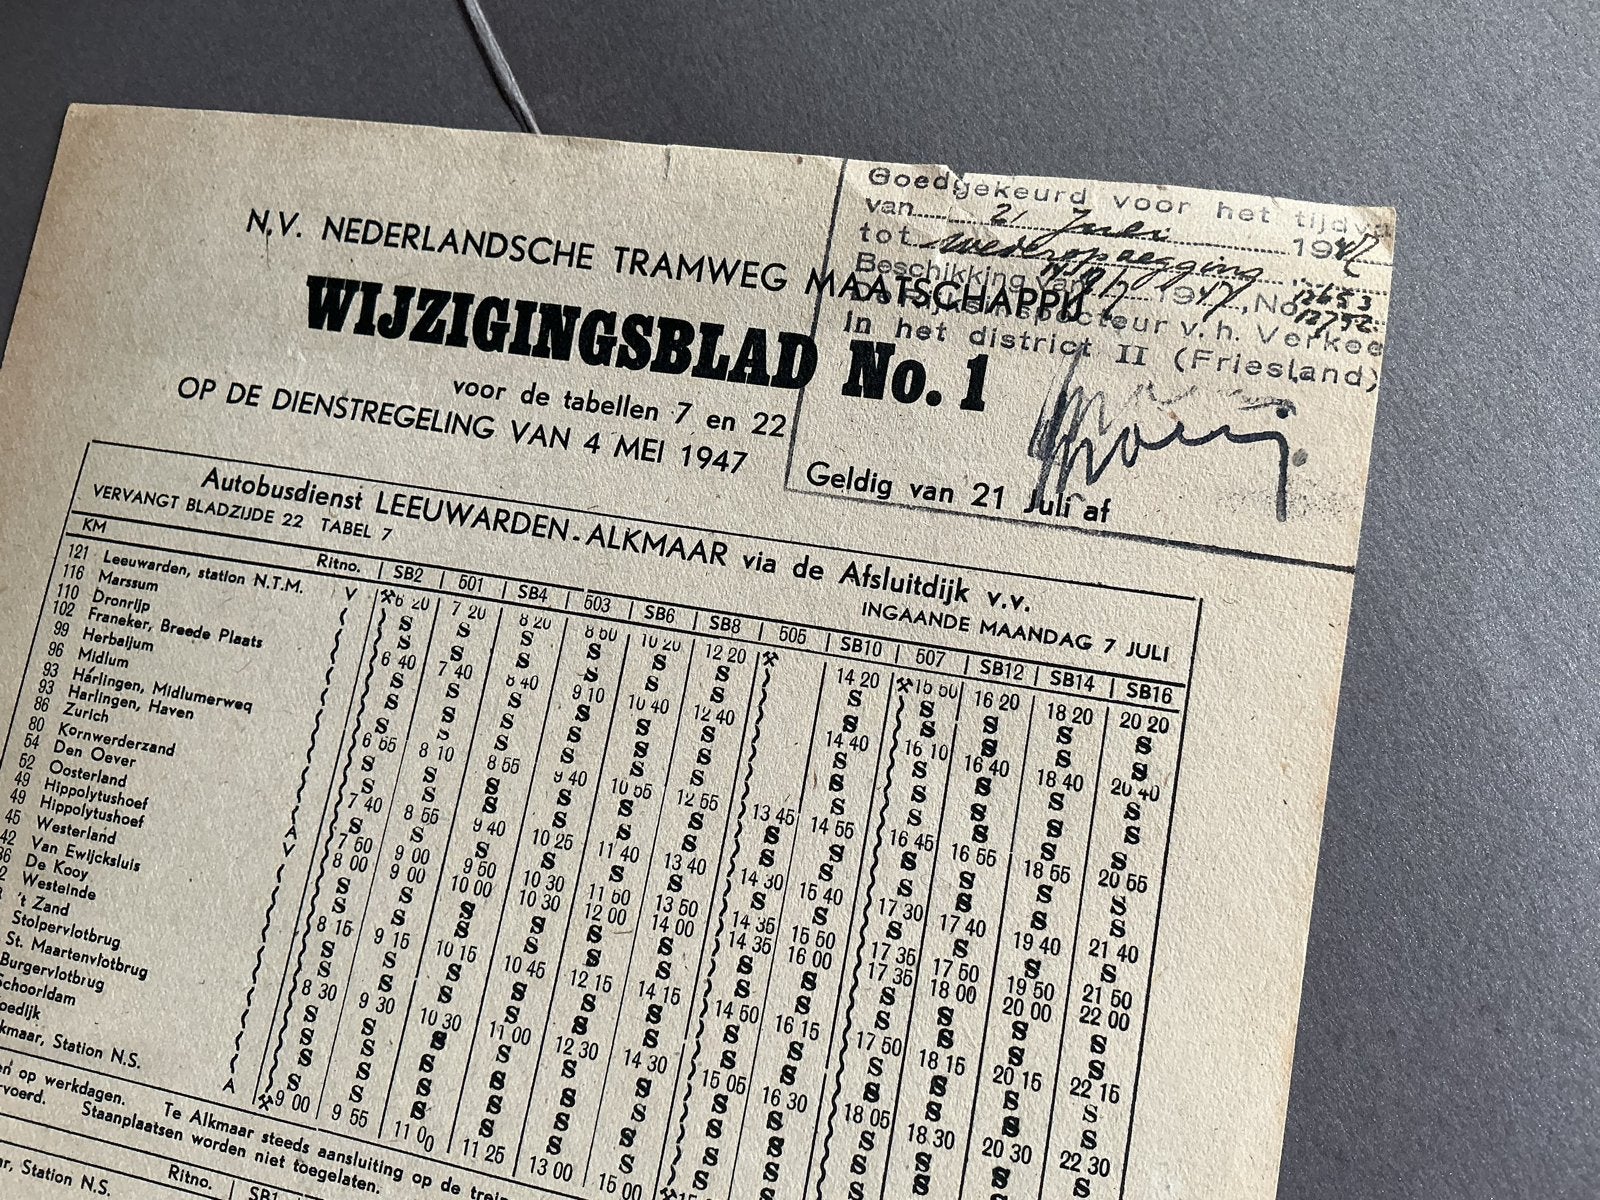 Goedgekeurd voor het tijdva
van 21 Juli 1947
tot wederopzegging
Beschikking van 19/7 1947, No. 12653
12752
De Rijksinspecteur v. h. Verkee
in het district II (Friesland)
N.V. NEDERLANDSCHE TRAMWEG MAATSCHAPPIJ
WIJZIGINGSBLAD No. 1
voor de tabellen 7 en 22
OP DE DIENSTREGELING VAN 4 MEI 1947
Geldig van 21 Juli af
Autobusdienst LEEUWARDEN-ALKMAAR via de Afsluitdijk v.v.
VERVANGT BLADZIJDE 22 TABEL 7
INGAANDE MAANDAG 7 JULI
KM Ritno. SB2 501 SB4 503 SB6 SB8 505 SB10 507 SB12 SB14 SB16
121 Leeuwarden, station N.T.M. V ⚒6 20 7 20 8 20 8 50 10 20 12 20 ⚒ 14 20 ⚒15 50 16 20 18 20 20 20
116 Marssum S S S S S S S S S S S
110 Dronrijp S S S S S S S S S S S
102 Franeker, Breede Plaats 6 40 7 40 8 40 9 10 10 40 12 40 14 40 16 10 16 40 18 40 20 40
99 Herbaijum S S S S S S S S S S S
96 Midlum S S S S S S S S S S S
93 Harlingen, Midlumerweg S S S S S S S S S S S
93 Harlingen, Haven 6 55 8 10 8 55 9 40 10 55 12 55 13 45 14 55 16 45 16 55 18 55 20 55
86 Zurich S S S S S S S S S S S S
80 Kornwerderzand S S S S S S S S S S S S
54 Den Oever 7 40 8 55 9 40 10 25 11 40 13 40 14 30 15 40 17 30 17 40 19 40 21 40
52 Oosterland S S S S S S S S S S S
49 Hippolytushoef A 7 50 9 00 9 50 10 30 11 50 13 50 14 35 15 50 17 35 17 50 19 50 21 50
49 Hippolytushoef V 8 00 9 00 10 00 10 30 12 00 14 00 14 35 16 00 17 35 18 00 20 00 22 00
45 Westerland S S S S S S S S S S S S
42 Van Ewijcksluis S S S S S S S S S S S S
36 De Kooy 8 15 9 15 10 15 10 45 12 15 14 15 14 50 16 15 17 50 18 15 20 15 22 15
Westeinde S S S S S S S S S S S S
't Zand S S S S S S S S S S S S
Stolpervlotbrug 8 30 9 30 10 30 11 00 12 30 14 30 15 05 16 30 18 05 18 30 20 30 22 30
St. Maartenvlotbrug S S S S S S S S S S S S
Burgervlotbrug S S S S S S S
Schoorldam S S S S S S
oedijk S S S S
kmaar, Station N.S. A ⚒9 00 9 55 11 00 11 25 13 00 15 00
en op werkdagen. Te Alkmaar steeds aansluiting op de trein
rvoerd. Staanplaatsen worden niet toegelaten.
ar, Station N.S. Ritno. SB1